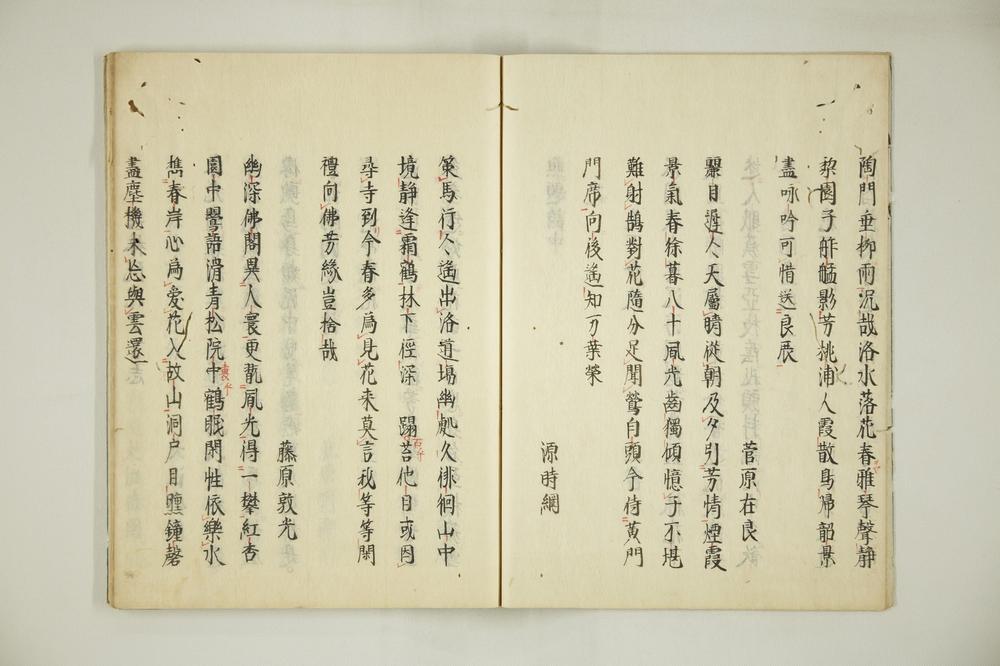 陶門垂柳雨沉哉洛水落花春雅琴聲靜
梨園子舴艋影芳桃浦人霞散鳥帰韶景
盡咏吟可惜送良辰
菅原在良
麗日遅々天属晴從朝及夕引芳情煙霞
景氣春徐暮八十風光齒獨傾憶子不堪
難射鵠對花隨分足聞鶯自頭今侍黄門
門席向後遙知万葉榮
源時綱
策馬行々遙出洛道場幽處久徘徊山中
境静逢霜鶴林下徑深蹋苔他日或因
尋寺到今春多為見花来莫言秘等等閑
禮向佛芳緣豈捨哉
藤原敦光
幽深佛閣異人寰更翫風光得一攀紅杏
園中鸎語滑青松院中鶴眠閑性依樂水
携春岸心為愛花入故山洞户日曛鐘磬
盡塵機未忘與雲還